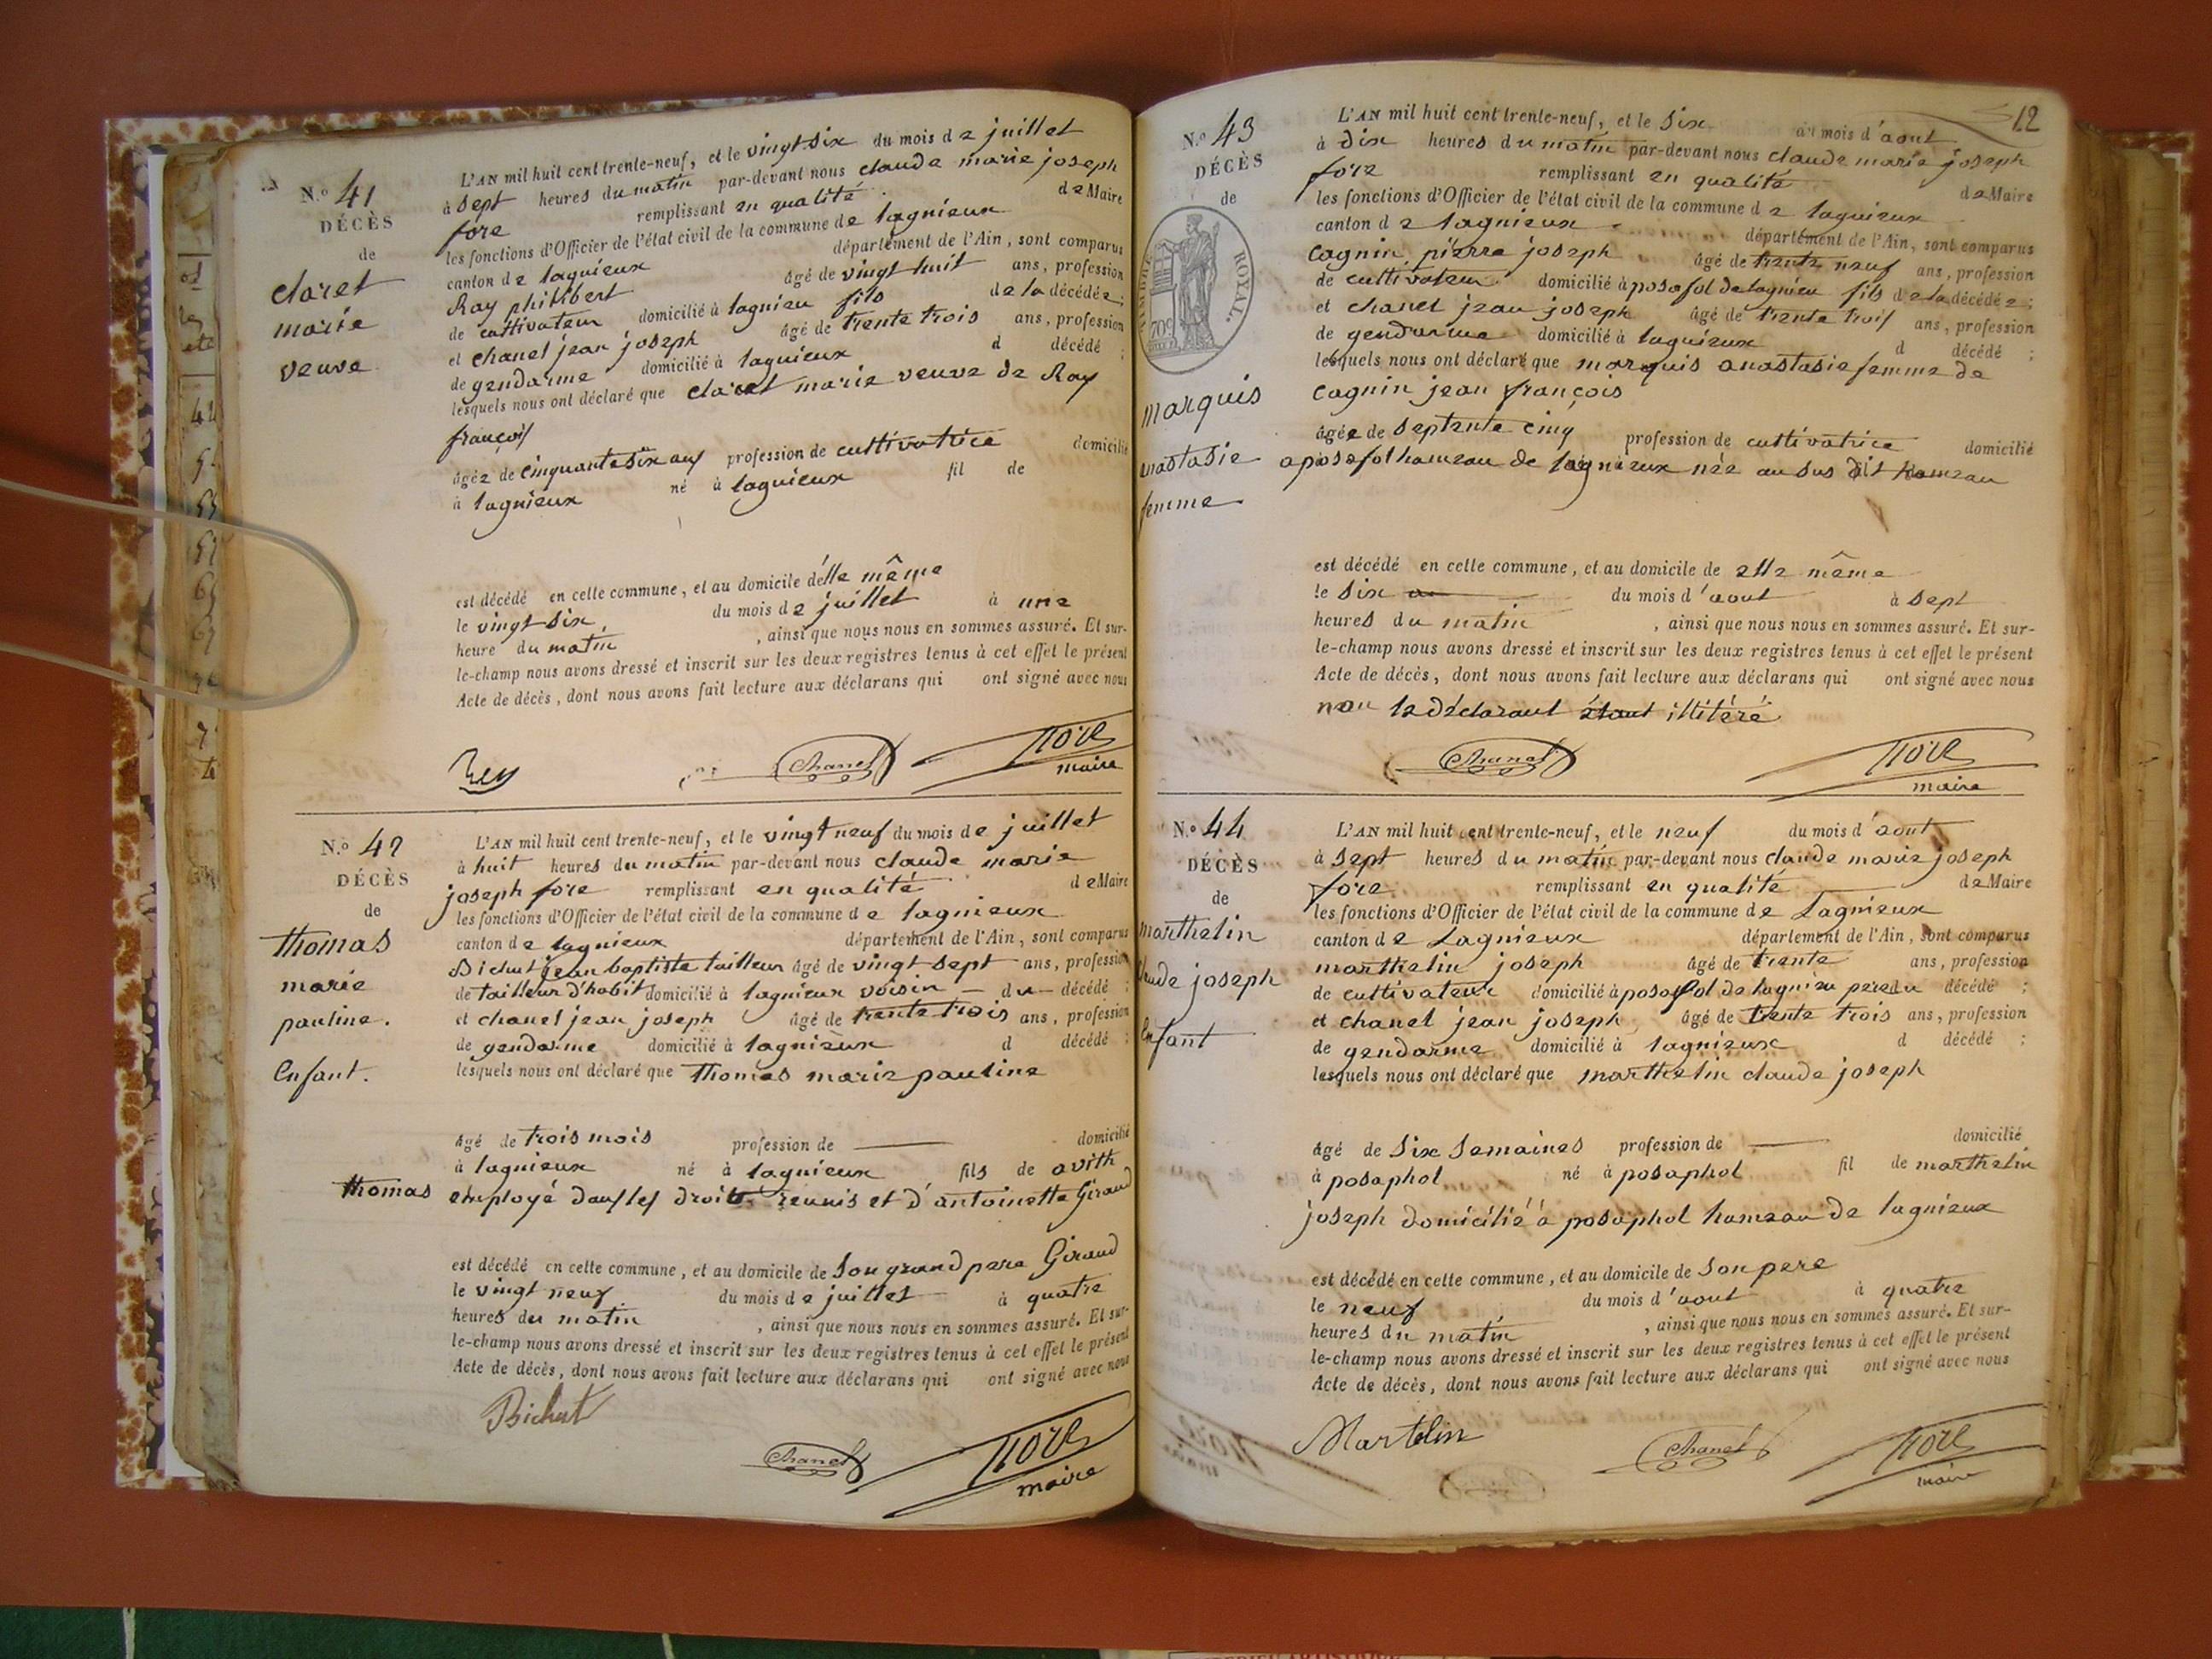 N.º 41
DÉCÈS
de
claret
marie
veuve
L'AN mil huit cent trente-neuf, et le vingt six du mois de juillet
à sept heures du matin par-devant nous claude marie joseph
fore remplissant en qualité de Maire
les fonctions d'Officier de l'état civil de la commune de lagnieux
canton de lagnieux département de l'Ain, sont comparus
Ray philibert âgé de vingt huit ans, profession
de cultivateur domicilié à lagnieu fils de la décédée;
et chanel jean joseph âgé de trente trois ans, profession
de gendarme domicilié à lagnieux d décédé ;
lesquels nous ont déclaré que claret marie veuve de Ray
françois
âgée de cinquante six ans profession de cultivatrice domicilié
à lagnieux né à lagnieux fil de
est décédé en cette commune, et au domicile d'elle même
le vingt six du mois de juillet à une
heure du matin , ainsi que nous nous en sommes assuré. Et sur-
le-champ nous avons dressé et inscrit sur les deux registres tenus à cet effet le présent
Acte de décès, dont nous avons fait lecture aux déclarans qui ont signé avec nous
Rey Chanel fore
maire
N.º 42
DÉCÈS
de
thomas
marie
pauline.
Enfant.
L'AN mil huit cent trente-neuf, et le vingt neuf du mois de juillet
à huit heures du matin par-devant nous claude marie
joseph fore remplissant en qualité de Maire
les fonctions d'Officier de l'état civil de la commune de lagnieux
canton de lagnieux département de l'Ain, sont comparus
Bichat jean baptiste tailleur âgé de vingt sept ans, profession
de tailleur d'habit domicilié à lagnieux voisin – du – décédé ;
et chanel jean joseph âgé de trente trois ans, profession
de gendarme domicilié à lagnieux d décédé ;
lesquels nous ont déclaré que thomas marie pauline
âgé de trois mois profession de — domicilié
à lagnieux né à lagnieux fils de avith
thomas employé dans les droits reunis et d'antoinette Giraud
est décédé en cette commune, et au domicile de son grand pere Giraud
le vingt neuf du mois de juillet à quatre
heures du matin , ainsi que nous nous en sommes assuré. Et sur-
le-champ nous avons dressé et inscrit sur les deux registres tenus à cet effet le présent
Acte de décès, dont nous avons fait lecture aux déclarans qui ont signé avec nous
Bichat
Chanel fore
maire
12
N.º 43
DÉCÈS
de
ROYAL.
marquis
anastasie
femme
L'AN mil huit cent trente-neuf, et le six du mois d'aout
à dix heures du matin par-devant nous claude marie joseph
fore remplissant en qualité de Maire
les fonctions d'Officier de l'état civil de la commune de lagnieux
canton de lagnieux département de l'Ain, sont comparus
cagnin pierre joseph âgé de trente neuf ans, profession
de cultivateur domicilié à posafol de lagnieu fils de la décédée;
et chanel jean joseph âgé de trente trois ans, profession
de gendarme domicilié à lagnieux d décédé ;
lesquels nous ont déclaré que marquis anastasie femme de
cagnin jean françois
âgée de septente cinq profession de cultivatrice domicilié
a posafol hameau de lagnieux née au sus dit hameau
est décédé en cette commune, et au domicile de elle même
le six du mois d'aout à sept
heures du matin , ainsi que nous nous en sommes assuré. Et sur-
le-champ nous avons dressé et inscrit sur les deux registres tenus à cet effet le présent
Acte de décès, dont nous avons fait lecture aux déclarans qui ont signé avec nous
non le déclarant étant illitéré
Chanel fore
maire
N.º 44
DÉCÈS
de
marthelin
claude joseph
Enfant
L'AN mil huit cent trente-neuf, et le neuf du mois d'aout
à sept heures du matin par-devant nous claude marie joseph
fore remplissant en qualité de Maire
les fonctions d'Officier de l'état civil de la commune de Lagnieux
canton de Lagnieux département de l'Ain, sont comparus
marthelin joseph âgé de trente ans, profession
de cultivateur domicilié à posafol de lagnieu pere du décédé ;
et chanel jean joseph âgé de trente trois ans, profession
de gendarme domicilié à lagnieux d décédé ;
lesquels nous ont déclaré que marthelin claude joseph
âgé de six semaines profession de — domicilié
à posaphol né à posaphol fil de marthelin
joseph domicilié à posaphol hameau de lagnieux
est décédé en cette commune, et au domicile de son pere
le neuf du mois d'aout à quatre
heures du matin , ainsi que nous nous en sommes assuré. Et sur-
le-champ nous avons dressé et inscrit sur les deux registres tenus à cet effet le présent
Acte de décès, dont nous avons fait lecture aux déclarans qui ont signé avec nous
Martelin Chanel fore
maire